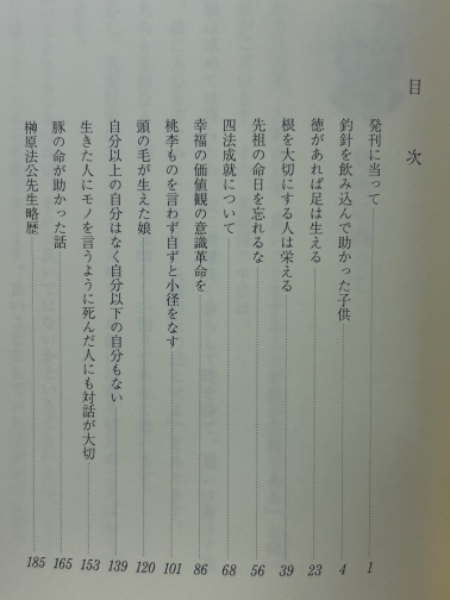 目次
発刊に当って 1
釣針を飲み込んで助かった子供 4
徳があれば足は生える 23
根を大切にする人は栄える 39
先祖の命日を忘れるな 56
四法成就について 68
幸福の価値観の意識革命を 86
桃李ものを言わず自ずと小径をなす 101
頭の毛が生えた娘 120
自分以上の自分はなく自分以下の自分もない 139
生きた人にモノを言うように死んだ人にも対話が大切 153
豚の命が助かった話 165
榊原法公先生略歴 185